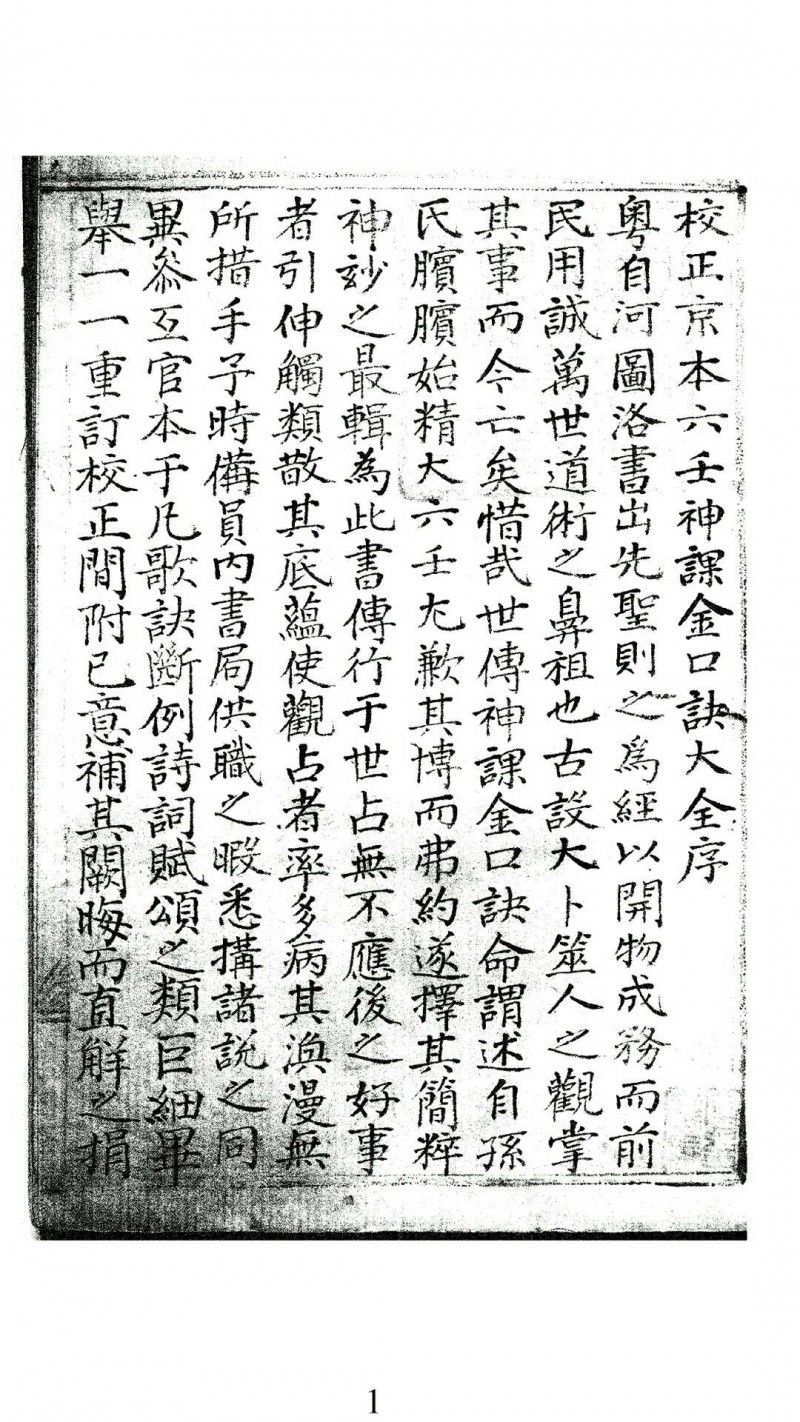 校正京本六壬神課金口訣大全序
粵自河圖洛書出先聖則之爲經以開物成務而前
民用誠萬世道術之鼻祖也古設大卜筮人之觀掌
其事而今亡矣惜哉世傳神課金口訣命謂述自孫
氏臏臏始精大六壬尤歉其博而弗約遂擇其簡粹
神玅之最輯為此書傳行于世占無不應後之好事
者引伸觸類敬其底蘊使觀占者率多病其渙漫無
所措手予時備員內書局供職之暇悉搆諸說之同
異叅互官本于凡歌訣斷例詩詞賦頌之類巨細畢
舉一一重訂校正間附己意補其闕晦而直解之捐
1